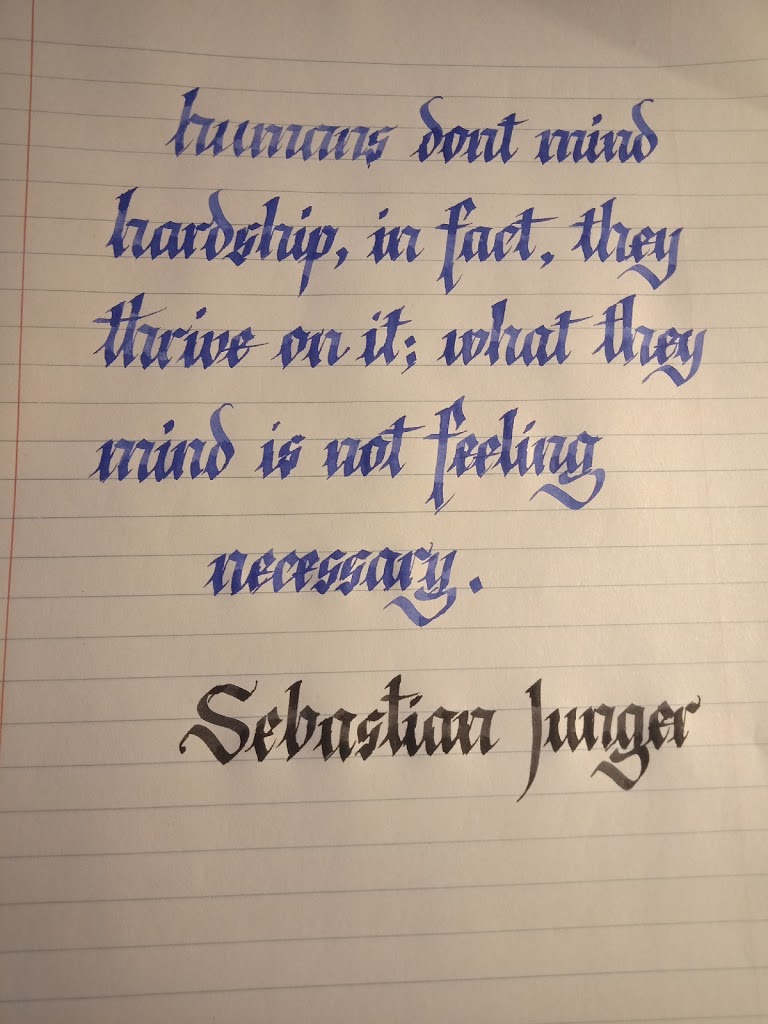 humans dont mind
hardship, in fact, they
thrive on it; what they
mind is not feeling
necessary.
Sebastian Junger